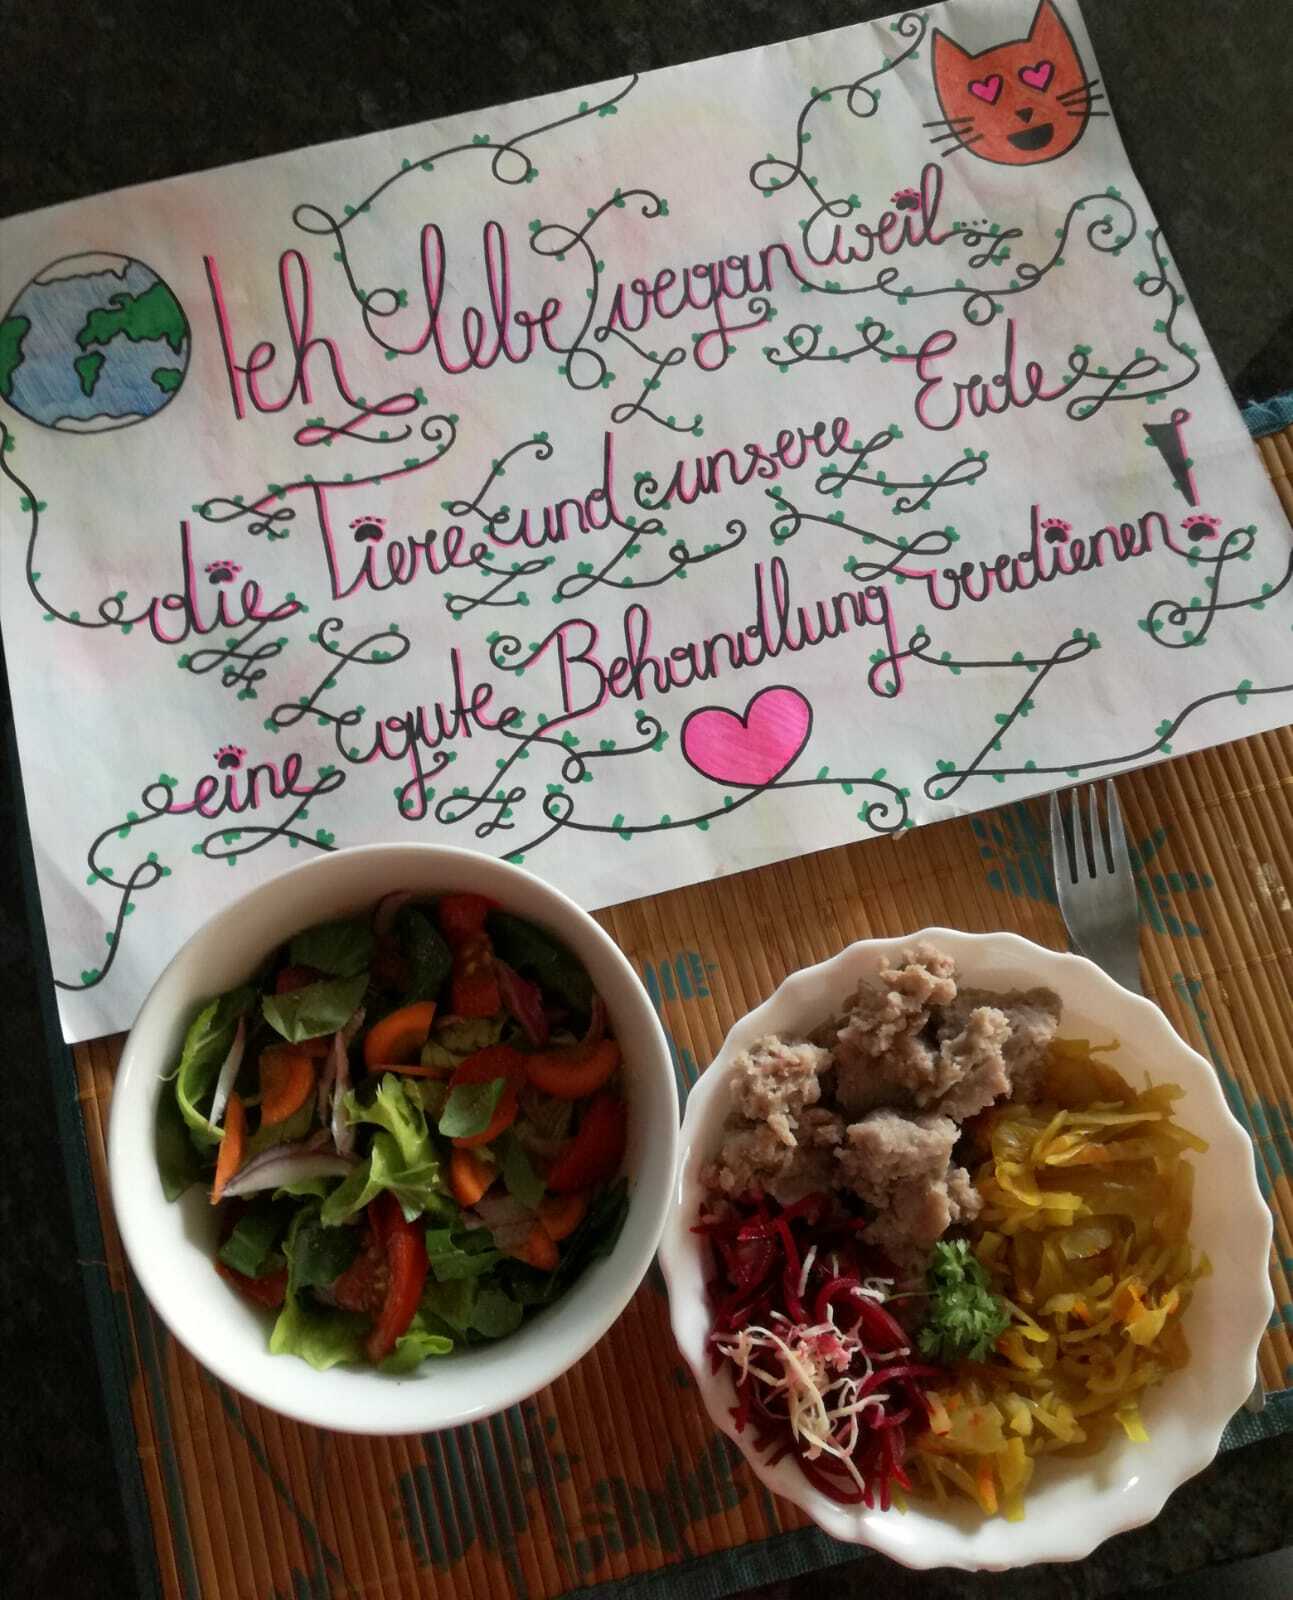 Ich lebe vegan weil
die Tiere und unsere Erde
eine gute Behandlung verdienen!